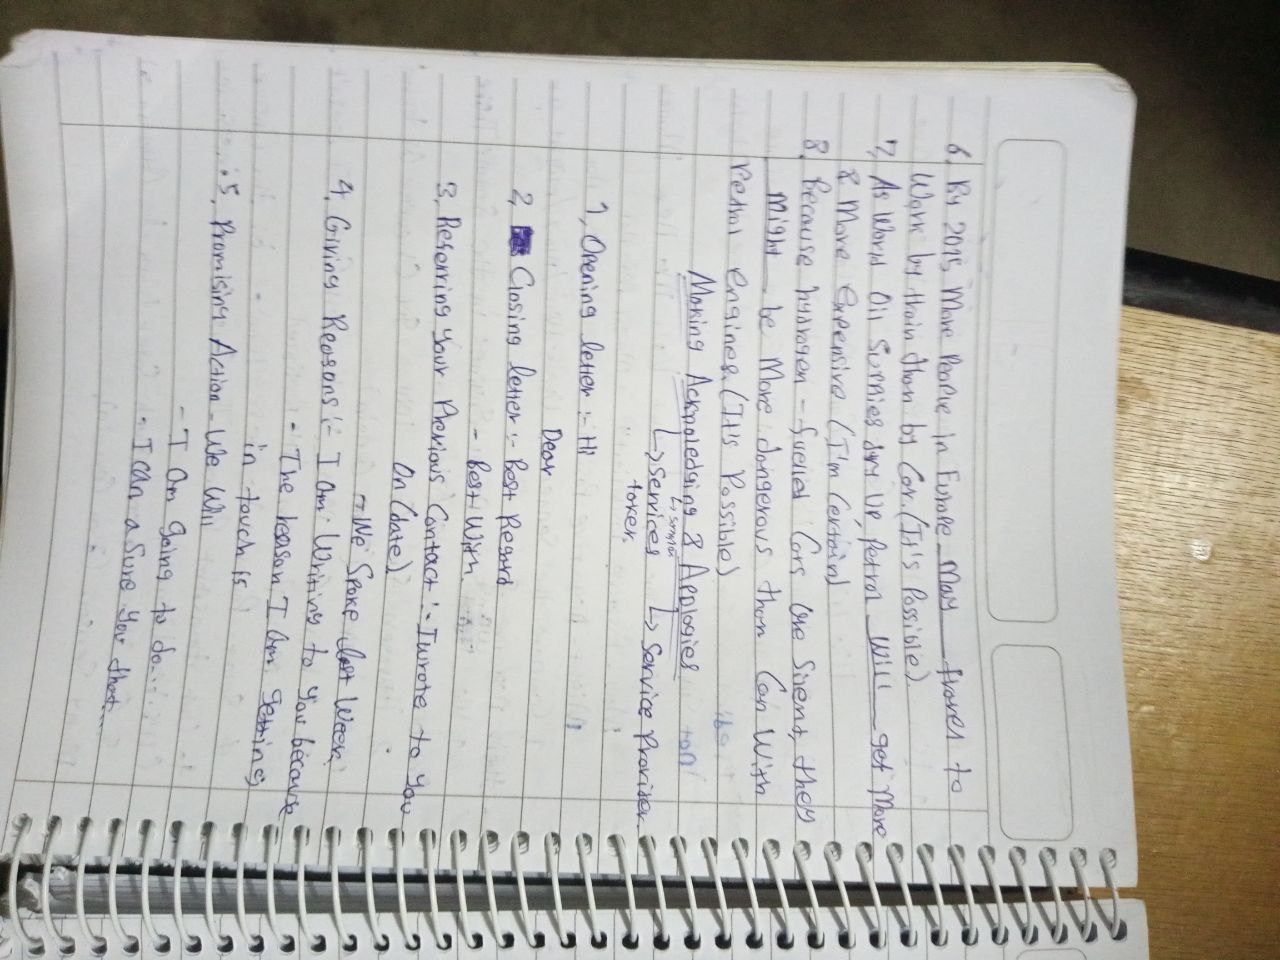 6. By 2015, More People in Europe May travel to
Work by train than by Car. (It's Possible)
7, As World Oil Supplies dry Up, Petrol Will get More
& More expensive (I'm Certain)
8. Because hydrogen - fuelled Cars are Silent, they
Might be More dangerous than Cars With
Petrol engines. (It's Possible)
Making Acknoledging & Apologies
↳ Services ↳ Service Provider
token.
1, Opening letter :- Hi
Dear
2, Closing letter :- Best Regard
- Best With
3, Referring Your Previous Contact :- I wrote to you
On (date)
→ We Spoke last Week,
4. Giving Reasons :- I am Writing to you because
- The reason I am getting
in touch is
.5, Promising Action - We Will
- I am going to do....
- I can a Sure you that....